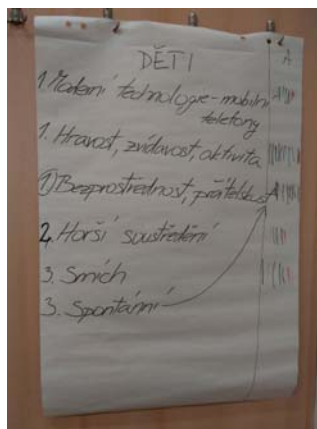 DĚTI
A
1. Moderní technologie - mobilní
telefony
1. Hravost, zvídavost, aktivita
1 Bezprostřednost, přátelskost
2. Horší soustředění
3. Smích
3. Spontánní